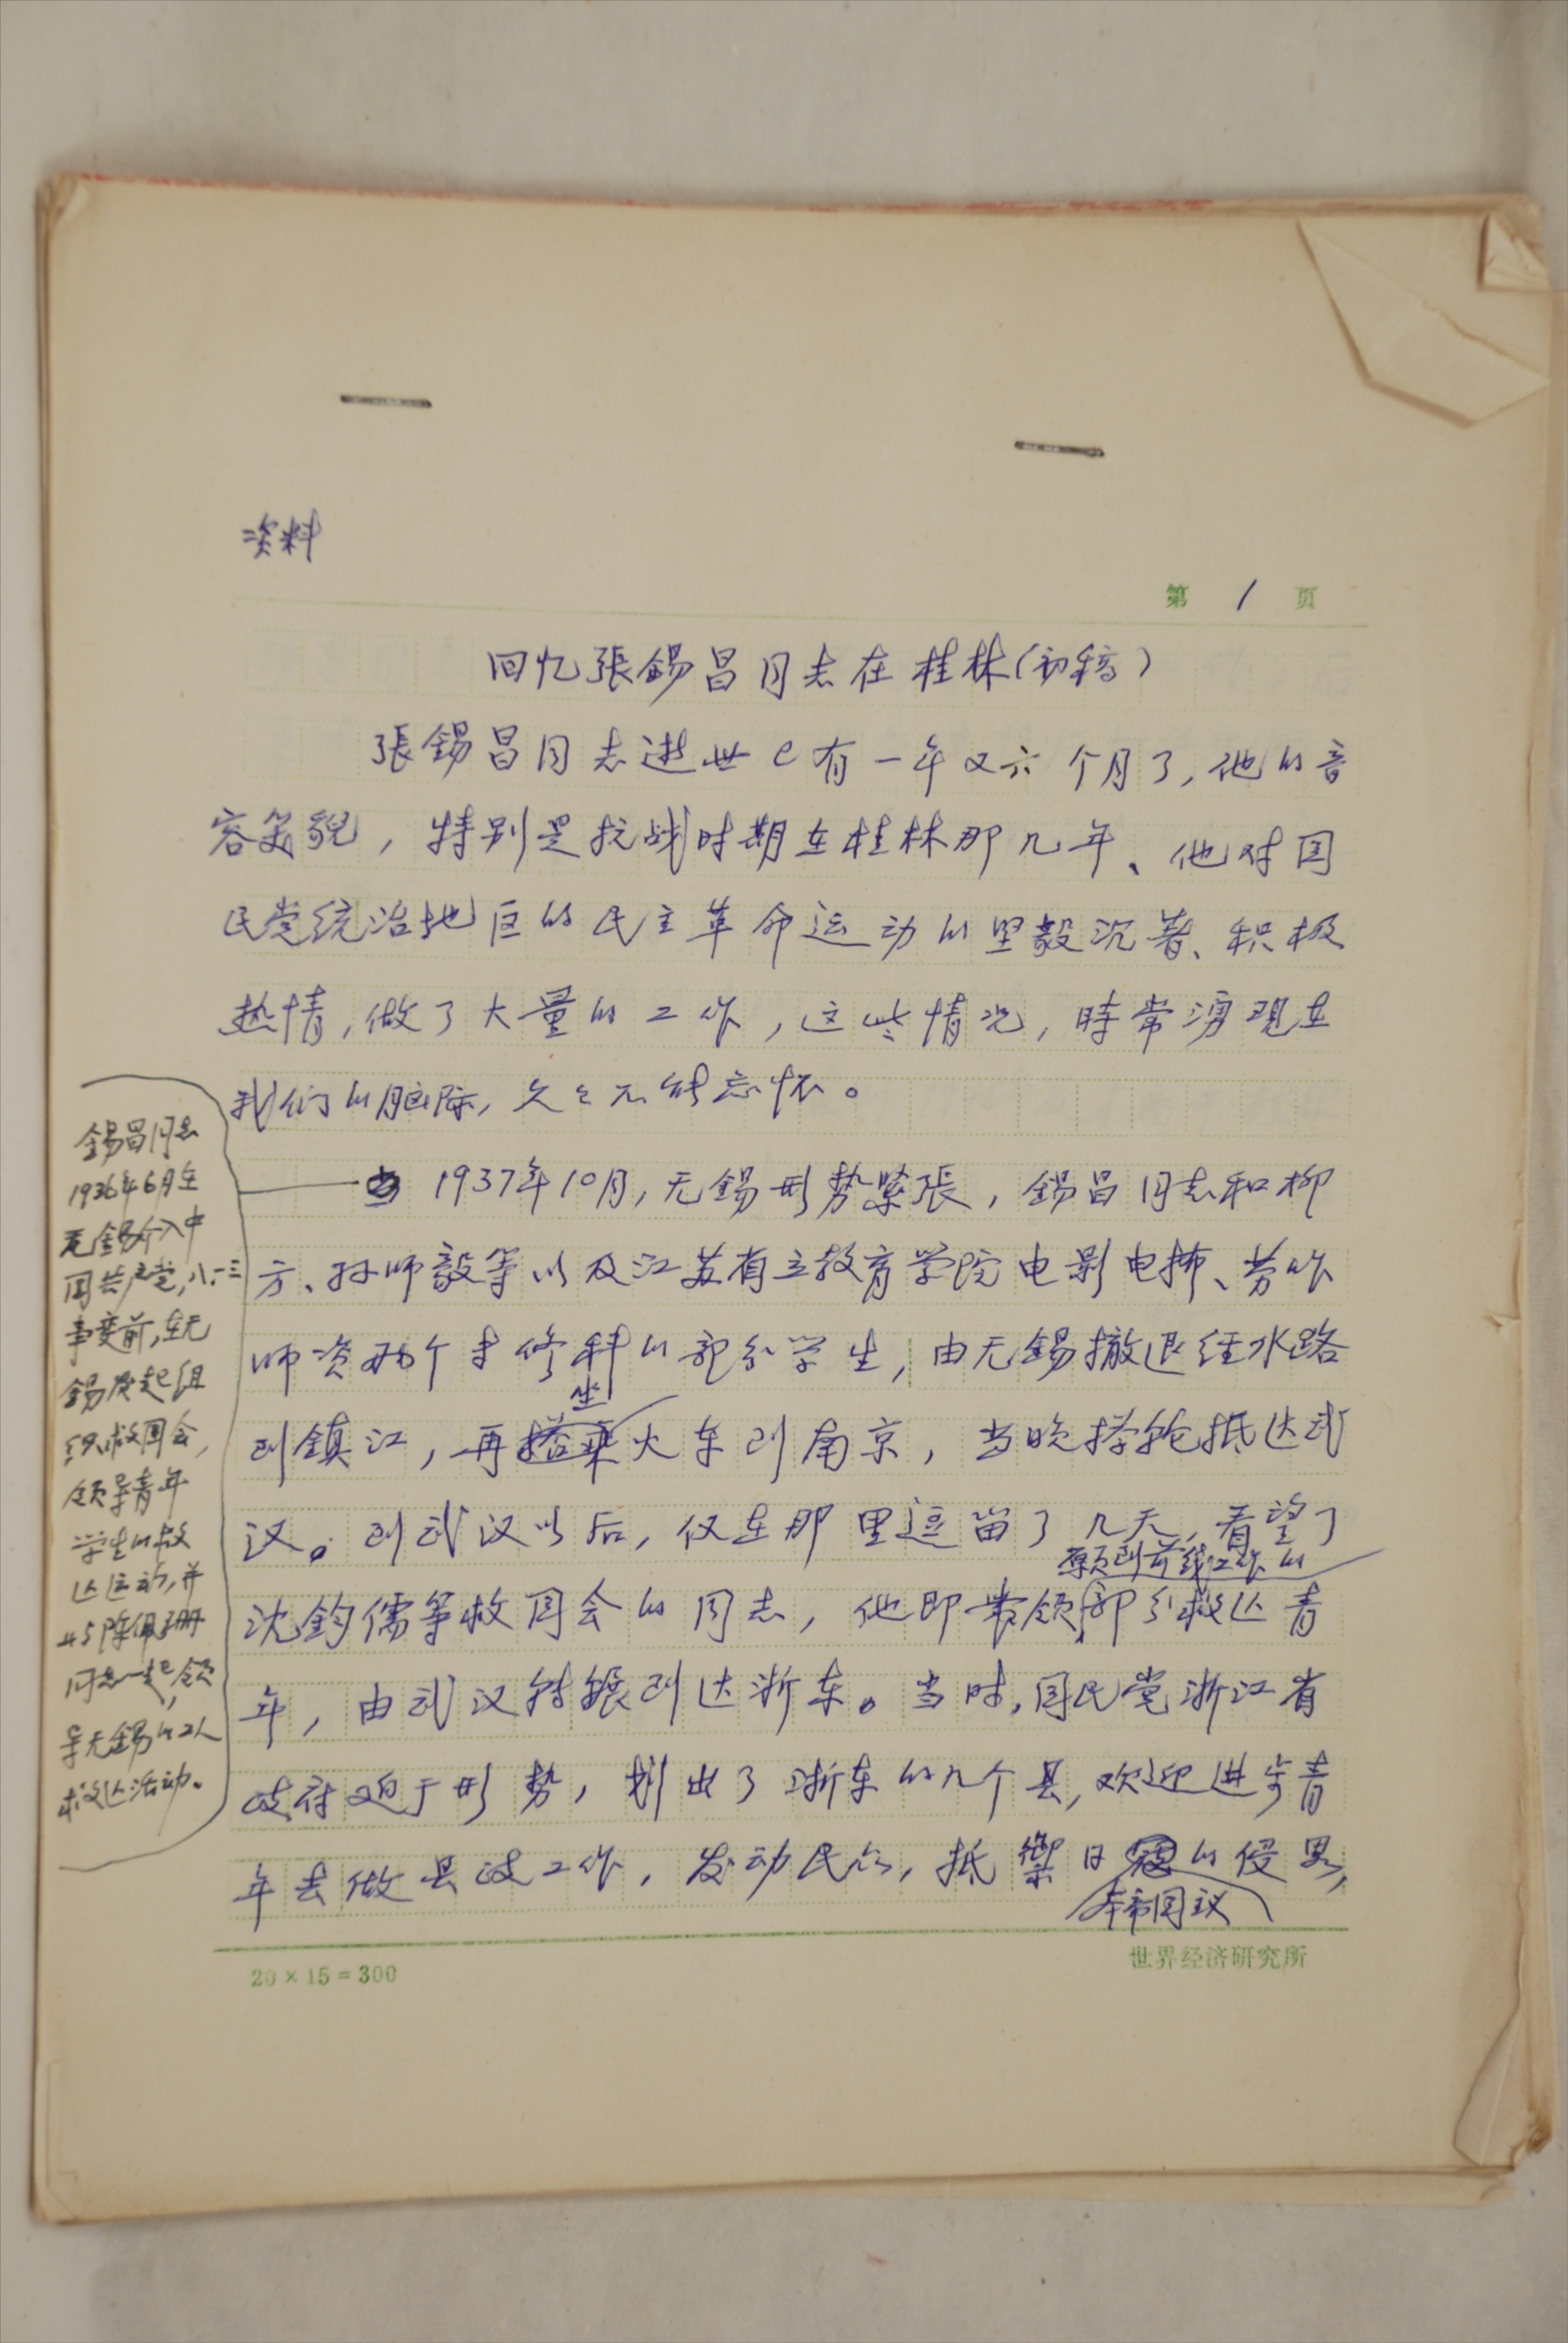 资料
第 1 页
回忆張錫昌同志在桂林(初稿)
張錫昌同志逝世已有一年又六个月了,他的音
容笑貌,特别是抗战时期在桂林那几年、他对国
民党统治地区的民主革命运动的坚毅沉著、积极
热情,做了大量的工作,这些情况,時常湧现在
我们的脑际,久久不能忘怀。
1937年10月,无錫形势紧張,錫昌同志和柳
方、孙师毅等以及江苏省立教育学院电影电播、劳作
师资两个专修科的部分学生,由无锡撤退经水路
坐
到鎮江,再搭乘火车到南京,当晚搭轮抵达武
汉。到武汉以后,仅在那里逗留了几天,看望了
愿到前线工作的
沈钧儒等救国会的同志,他即带领部分救亡青
年,由武汉转辗到达浙东。当时,国民党浙江省
政府迫于形势,划出了浙东的几个县,欢迎进步青
年去做县政工作,发动民众,抵禦日寇的侵畧,
本帝国主义
錫昌同志
1936年6月在
无錫介入中
国共产党,八·一三
事变前,在无
錫发起组
织救国会,
领导青年
学生的救
亡运动,并
与陈佩珊
同志一起,领
导无錫的工人
救亡活动。
20×15=300
世界经济研究所